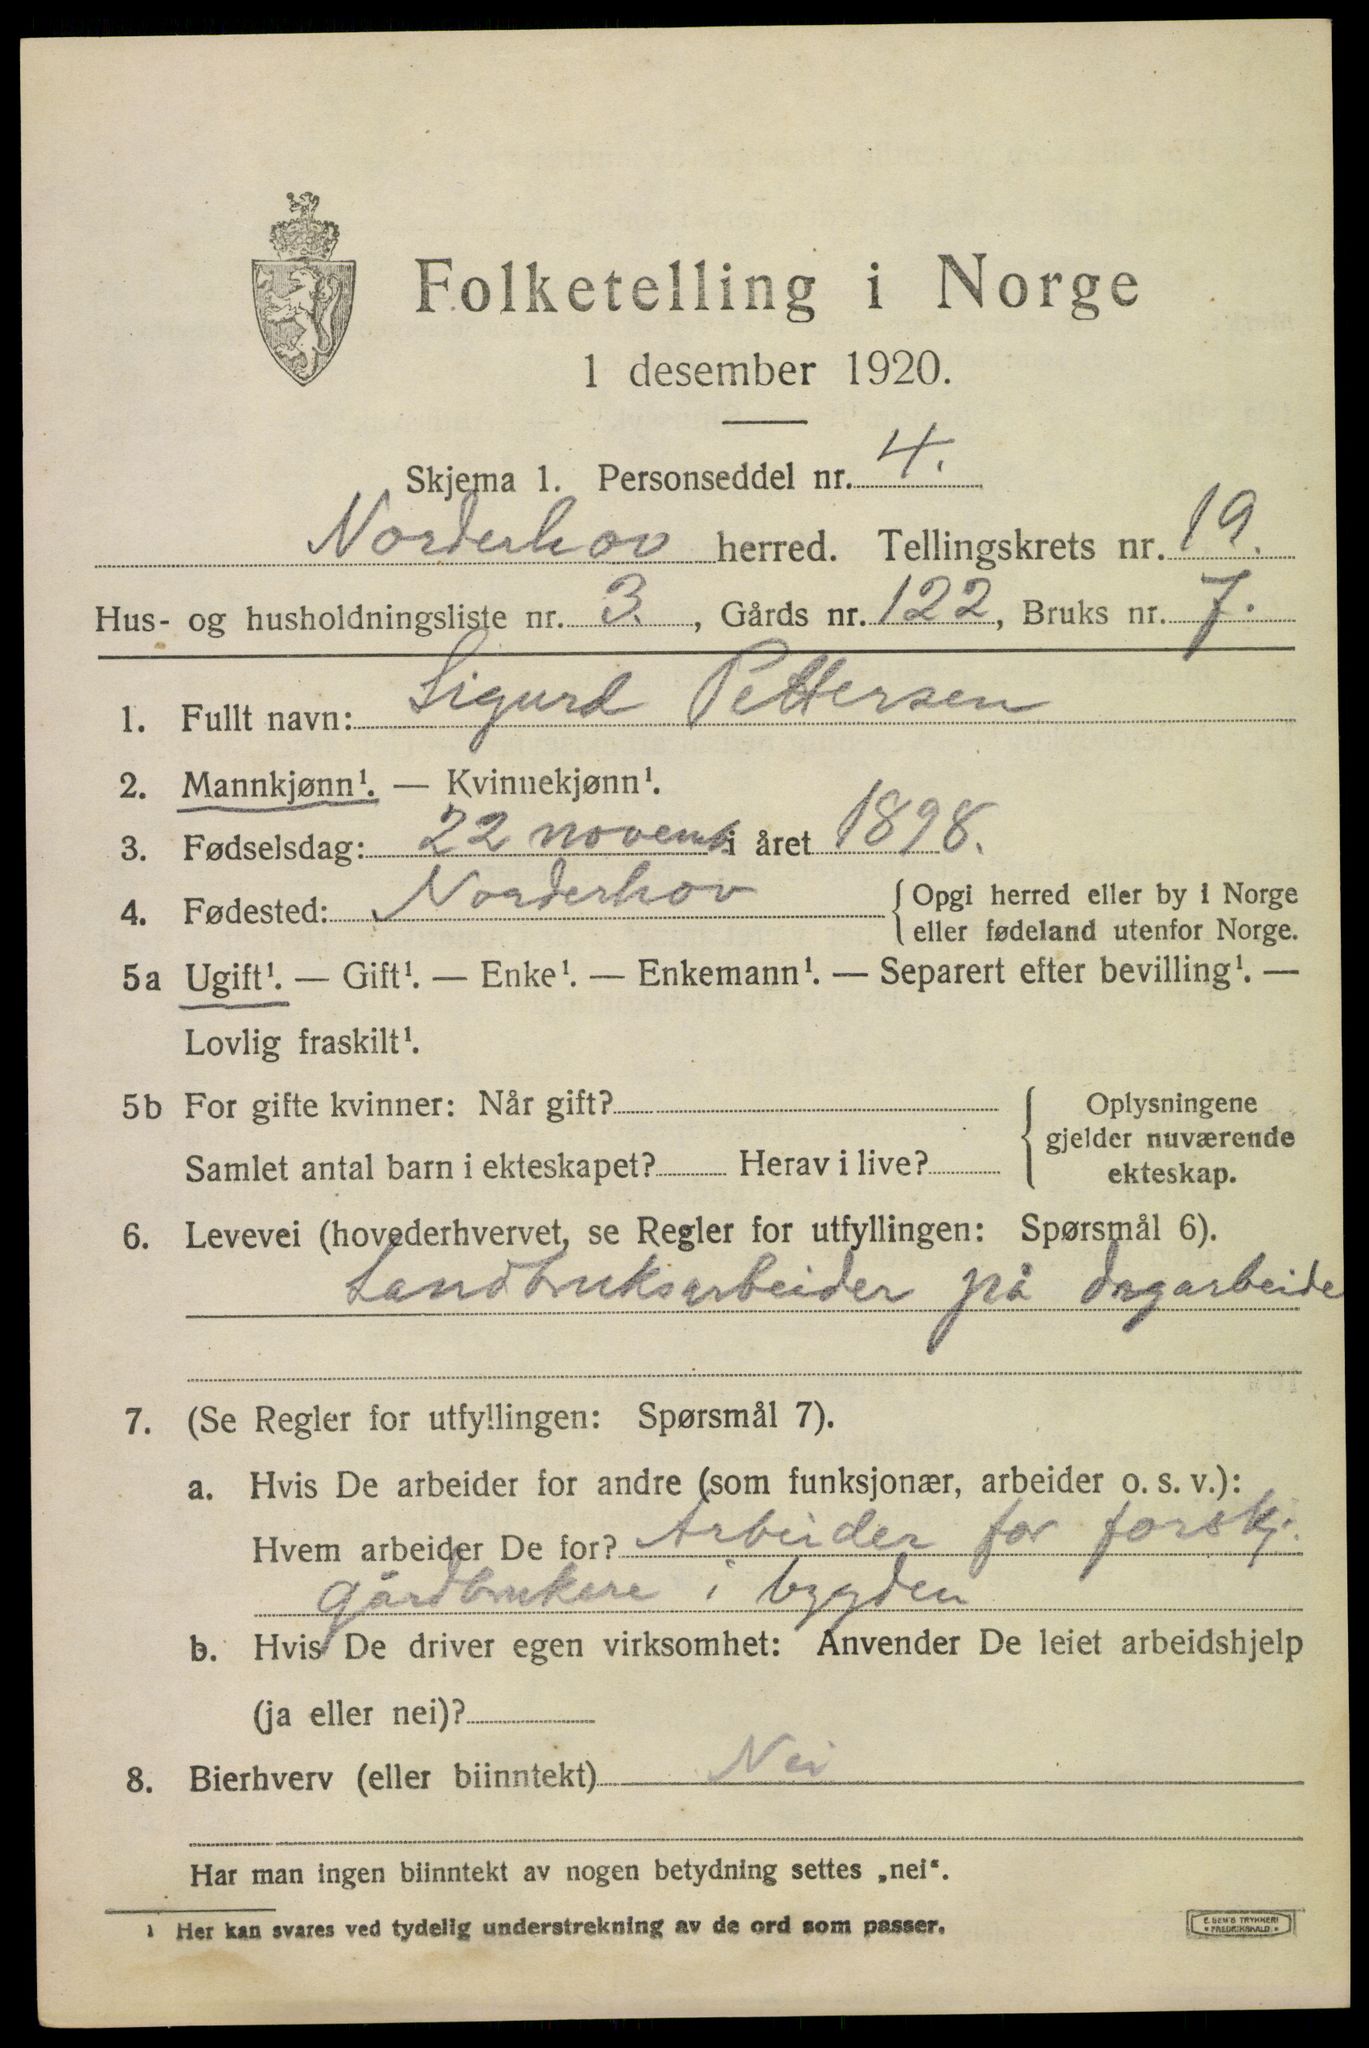 Folketelling i Norge
1 desember 1920.
Skjema 1. Personseddel nr. 4.
Norderhov herred. Tellingskrets nr. 19.
Hus- og husholdningsliste nr. 3., Gårds nr. 122, Bruks nr. 7.
1. Fullt navn: Sigurd Pettersen
2. Mannkjønn¹. — Kvinnekjønn¹.
3. Fødselsdag: 22 novemb i året 1898.
4. Fødested: Norderhov { Opgi herred eller by i Norge
eller fødeland utenfor Norge.
5a Ugift¹. — Gift¹. — Enke¹. — Enkemann¹. — Separert efter bevilling¹. —
Lovlig fraskilt¹.
5b For gifte kvinner: Når gift? { Oplysningene
gjelder nuværende
Samlet antal barn i ekteskapet? Herav i live? ekteskap.
6. Levevei (hovederhvervet, se Regler for utfyllingen: Spørsmål 6).
Landbruksarbeider på dagarbeide
7. (Se Regler for utfyllingen: Spørsmål 7).
a. Hvis De arbeider for andre (som funksjonær, arbeider o. s. v.):
Hvem arbeider De for? Arbeider for forskj.
gårdbrukere i bygden
b. Hvis De driver egen virksomhet: Anvender De leiet arbeidshjelp
(ja eller nei)?
8. Bierhverv (eller biinntekt) Nei
Har man ingen biinntekt av nogen betydning settes „nei“.
¹ Her kan svares ved tydelig understrekning av de ord som passer.
E. SEM'S TRYKKERI
• FREDRIKSHALD •